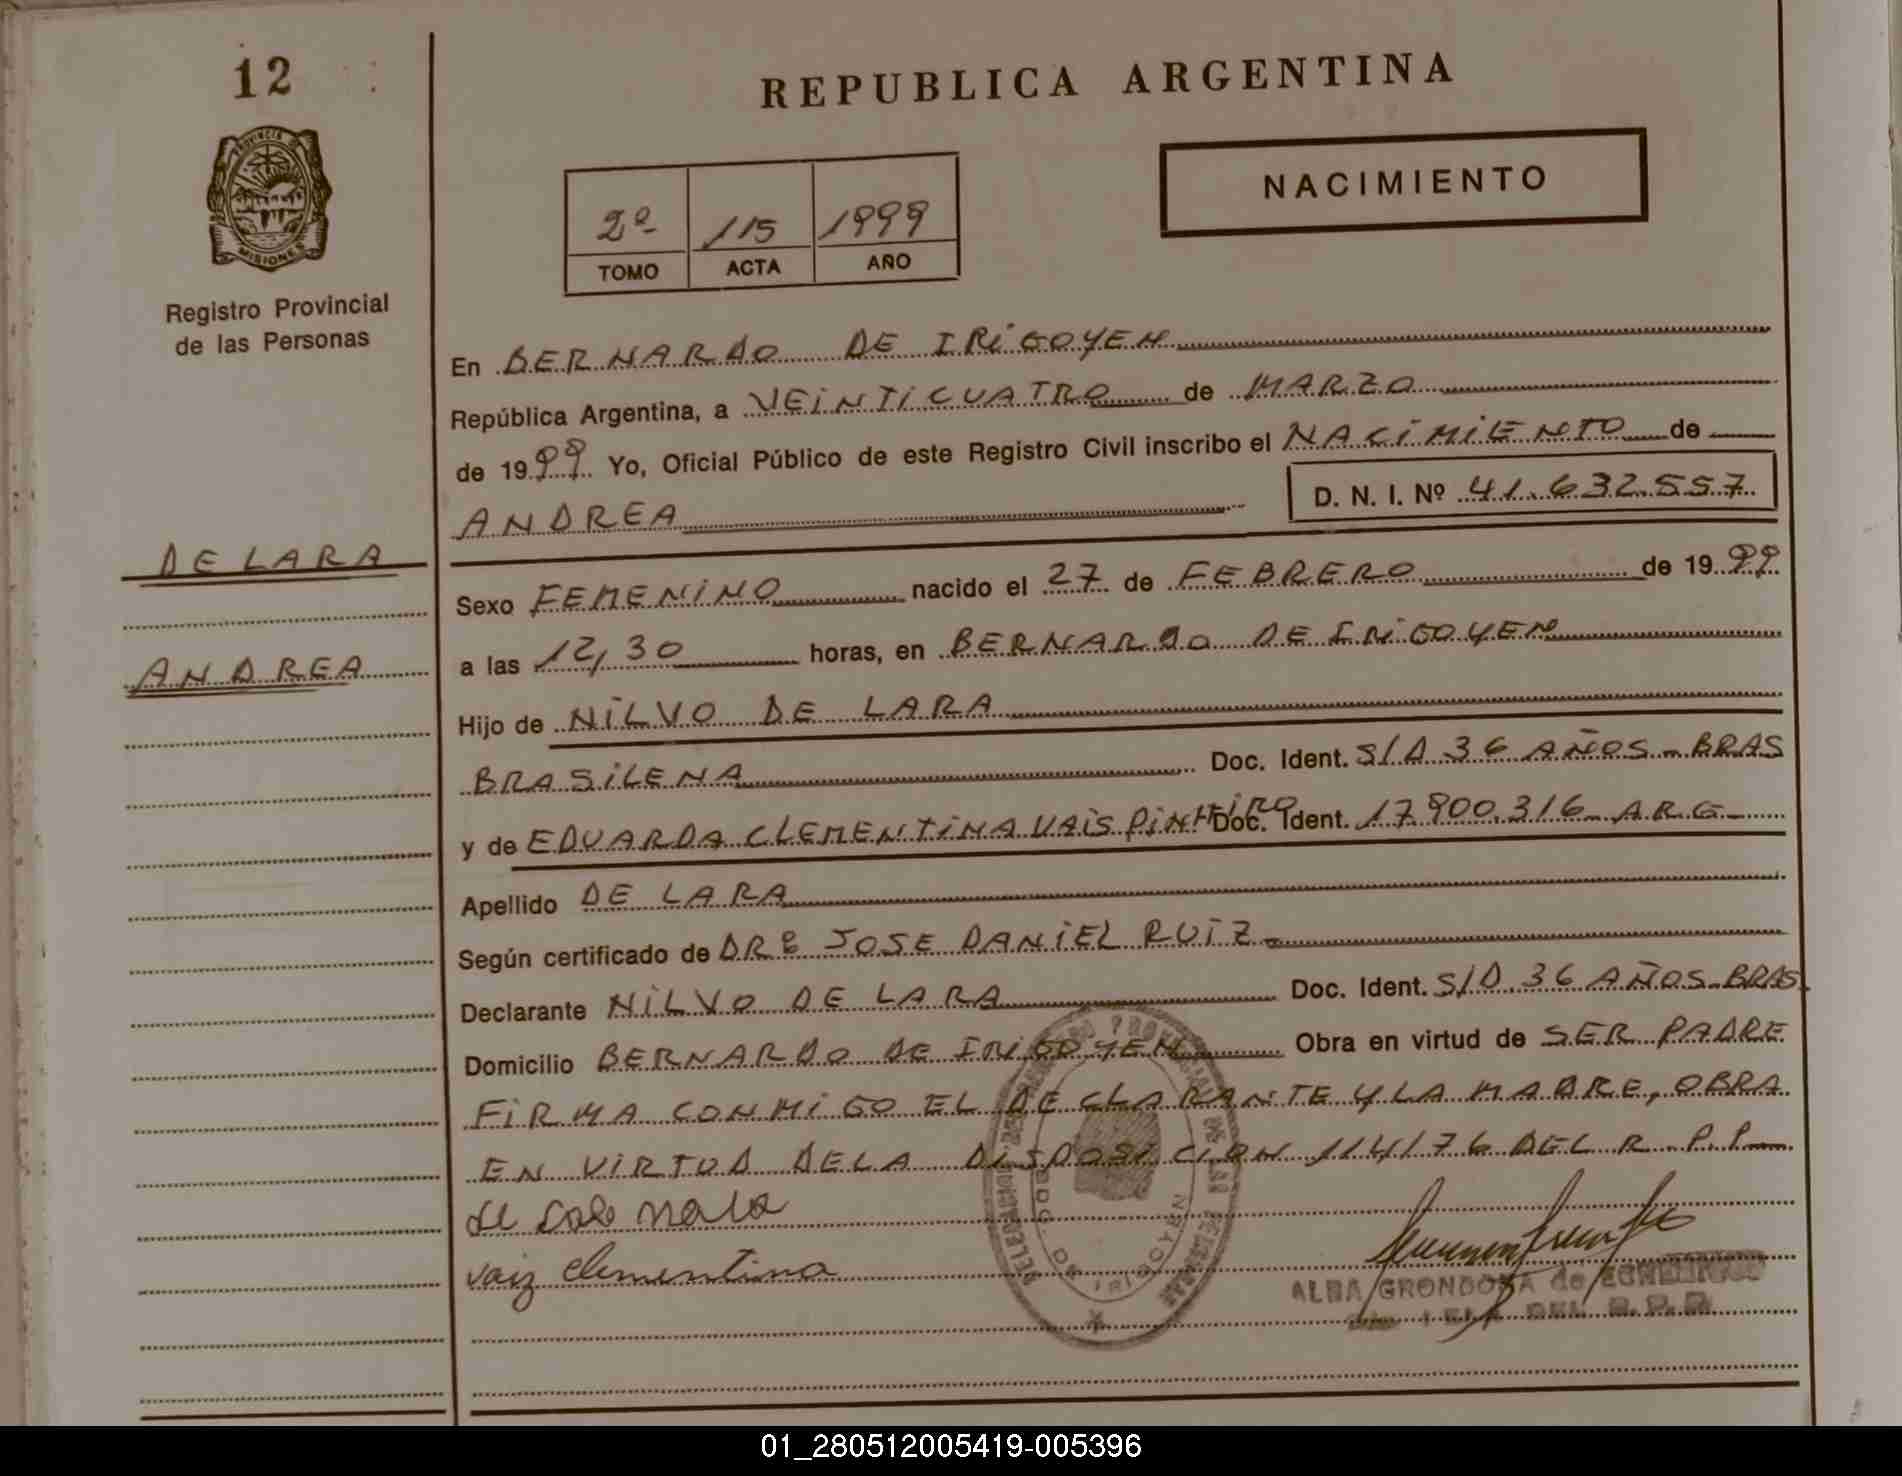 12
REPUBLICA ARGENTINA
PROVINCIA DE
MISIONES
NACIMIENTO
2º 115 1999
TOMO ACTA AÑO
Registro Provincial
de las Personas
En BERNARDO DE IRIGOYEN
República Argentina, a VEINTICUATRO de MARZO
de 1999 Yo, Oficial Público de este Registro Civil inscribo el NACIMIENTO de
ANDREA D. N. I. Nº 41.632.557
DE LARA
ANDREA
Sexo FEMENINO nacido el 27 de FEBRERO de 1999
a las 12,30 horas, en BERNARDO DE IRIGOYEN
Hijo de NILVO DE LARA
BRASILENA Doc. Ident. S/D 36 AÑOS - BRAS
y de EDUARDA CLEMENTINA VAIS PINHEIRO Doc. Ident. 17.900.316 - ARG-
Apellido DE LARA
Según certificado de DRº JOSE DANIEL RUIZ-
Declarante NILVO DE LARA Doc. Ident. S/D.36 AÑOS-BRAS.
Domicilio BERNARDO DE IRIGOYEN Obra en virtud de SER PADRE
FIRMA CONMIGO EL DECLARANTE Y LA MADRE, OBRA
EN VIRTUD DE LA DISPOSICION 114/76 DEL R.P.P
vaiz clementina
BDO. DE IRIGOYEN
ALBA GRONDONA de
DEL R.P.P.
01_280512005419-005396